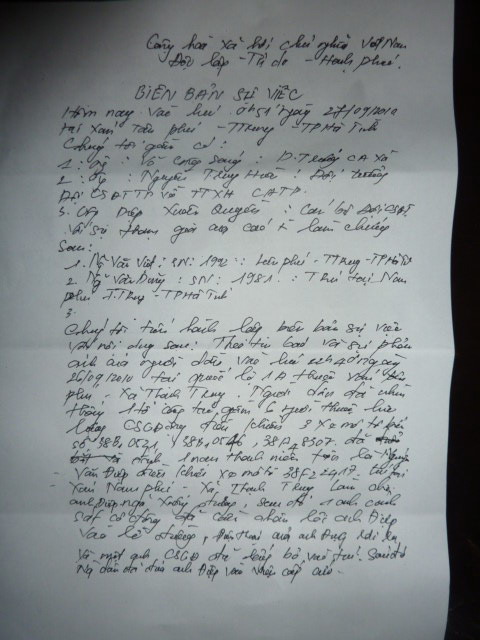 Cộng hoà xã hội chủ nghĩa Việt Nam
Độc lập - Tự do - Hạnh phúc.
BIÊN BẢN SỰ VIỆC
Hôm nay vào lúc 0h51 ngày 27/09/2010
tại xóm Tân phú - TTrung - TP Hà Tĩnh
Chúng tôi gồm có:
1: Ông: Võ Công Song: P. Trưởng CA Xã
2: Ông: Nguyễn Trung : Đội trưởng
Đội CSĐTTP về TTXH CATP.
3. Ông Diệp Xuân Quyền: Cán bộ Đội CSĐT
Với sự tham gia của các ông làm chứng
Sau:
1. Ng Văn Việt: SN: 199 : phú - TTrung - TP Hà Tĩnh
2. Ng Văn Dũng: SN: 1981 : Trú tại Nam
phú - T.Trung - TP Hà Tĩnh
3.
Chúng tôi tiến hành lập biên bản sự việc
với nội dung sau: Theo tin báo và sự phản
ánh của người dân vào lúc 22h40 ngày
26/09/2010 tại quốc lộ 1A thuộc xóm
phú, Xã Thạch Trung. Người dân đã nhìn
thấy 1 tổ công tác gồm 6 người thuộc lực
lượng CSGT đi trên 3 xe mô tô biển
số 38B1 0521, 38B1 0546, 38A 8307 đã
1 nam thanh niên tên là Nguyễn
Văn Điệp điều khiển xe mô tô 38F2 2417 tại
Xóm Nam phú - Xã Thạch Trung làm cho
anh Điệp ngã xuống đường sau đó 1 anh cảnh
sát cơ động lôi anh Điệp
vào lề đường, điện thoại của anh Điệp rơi
Và một anh CSGT đã bỏ vào túi. Sau đó
Ng dân đã đưa anh Điệp vào viện cấp cứu.